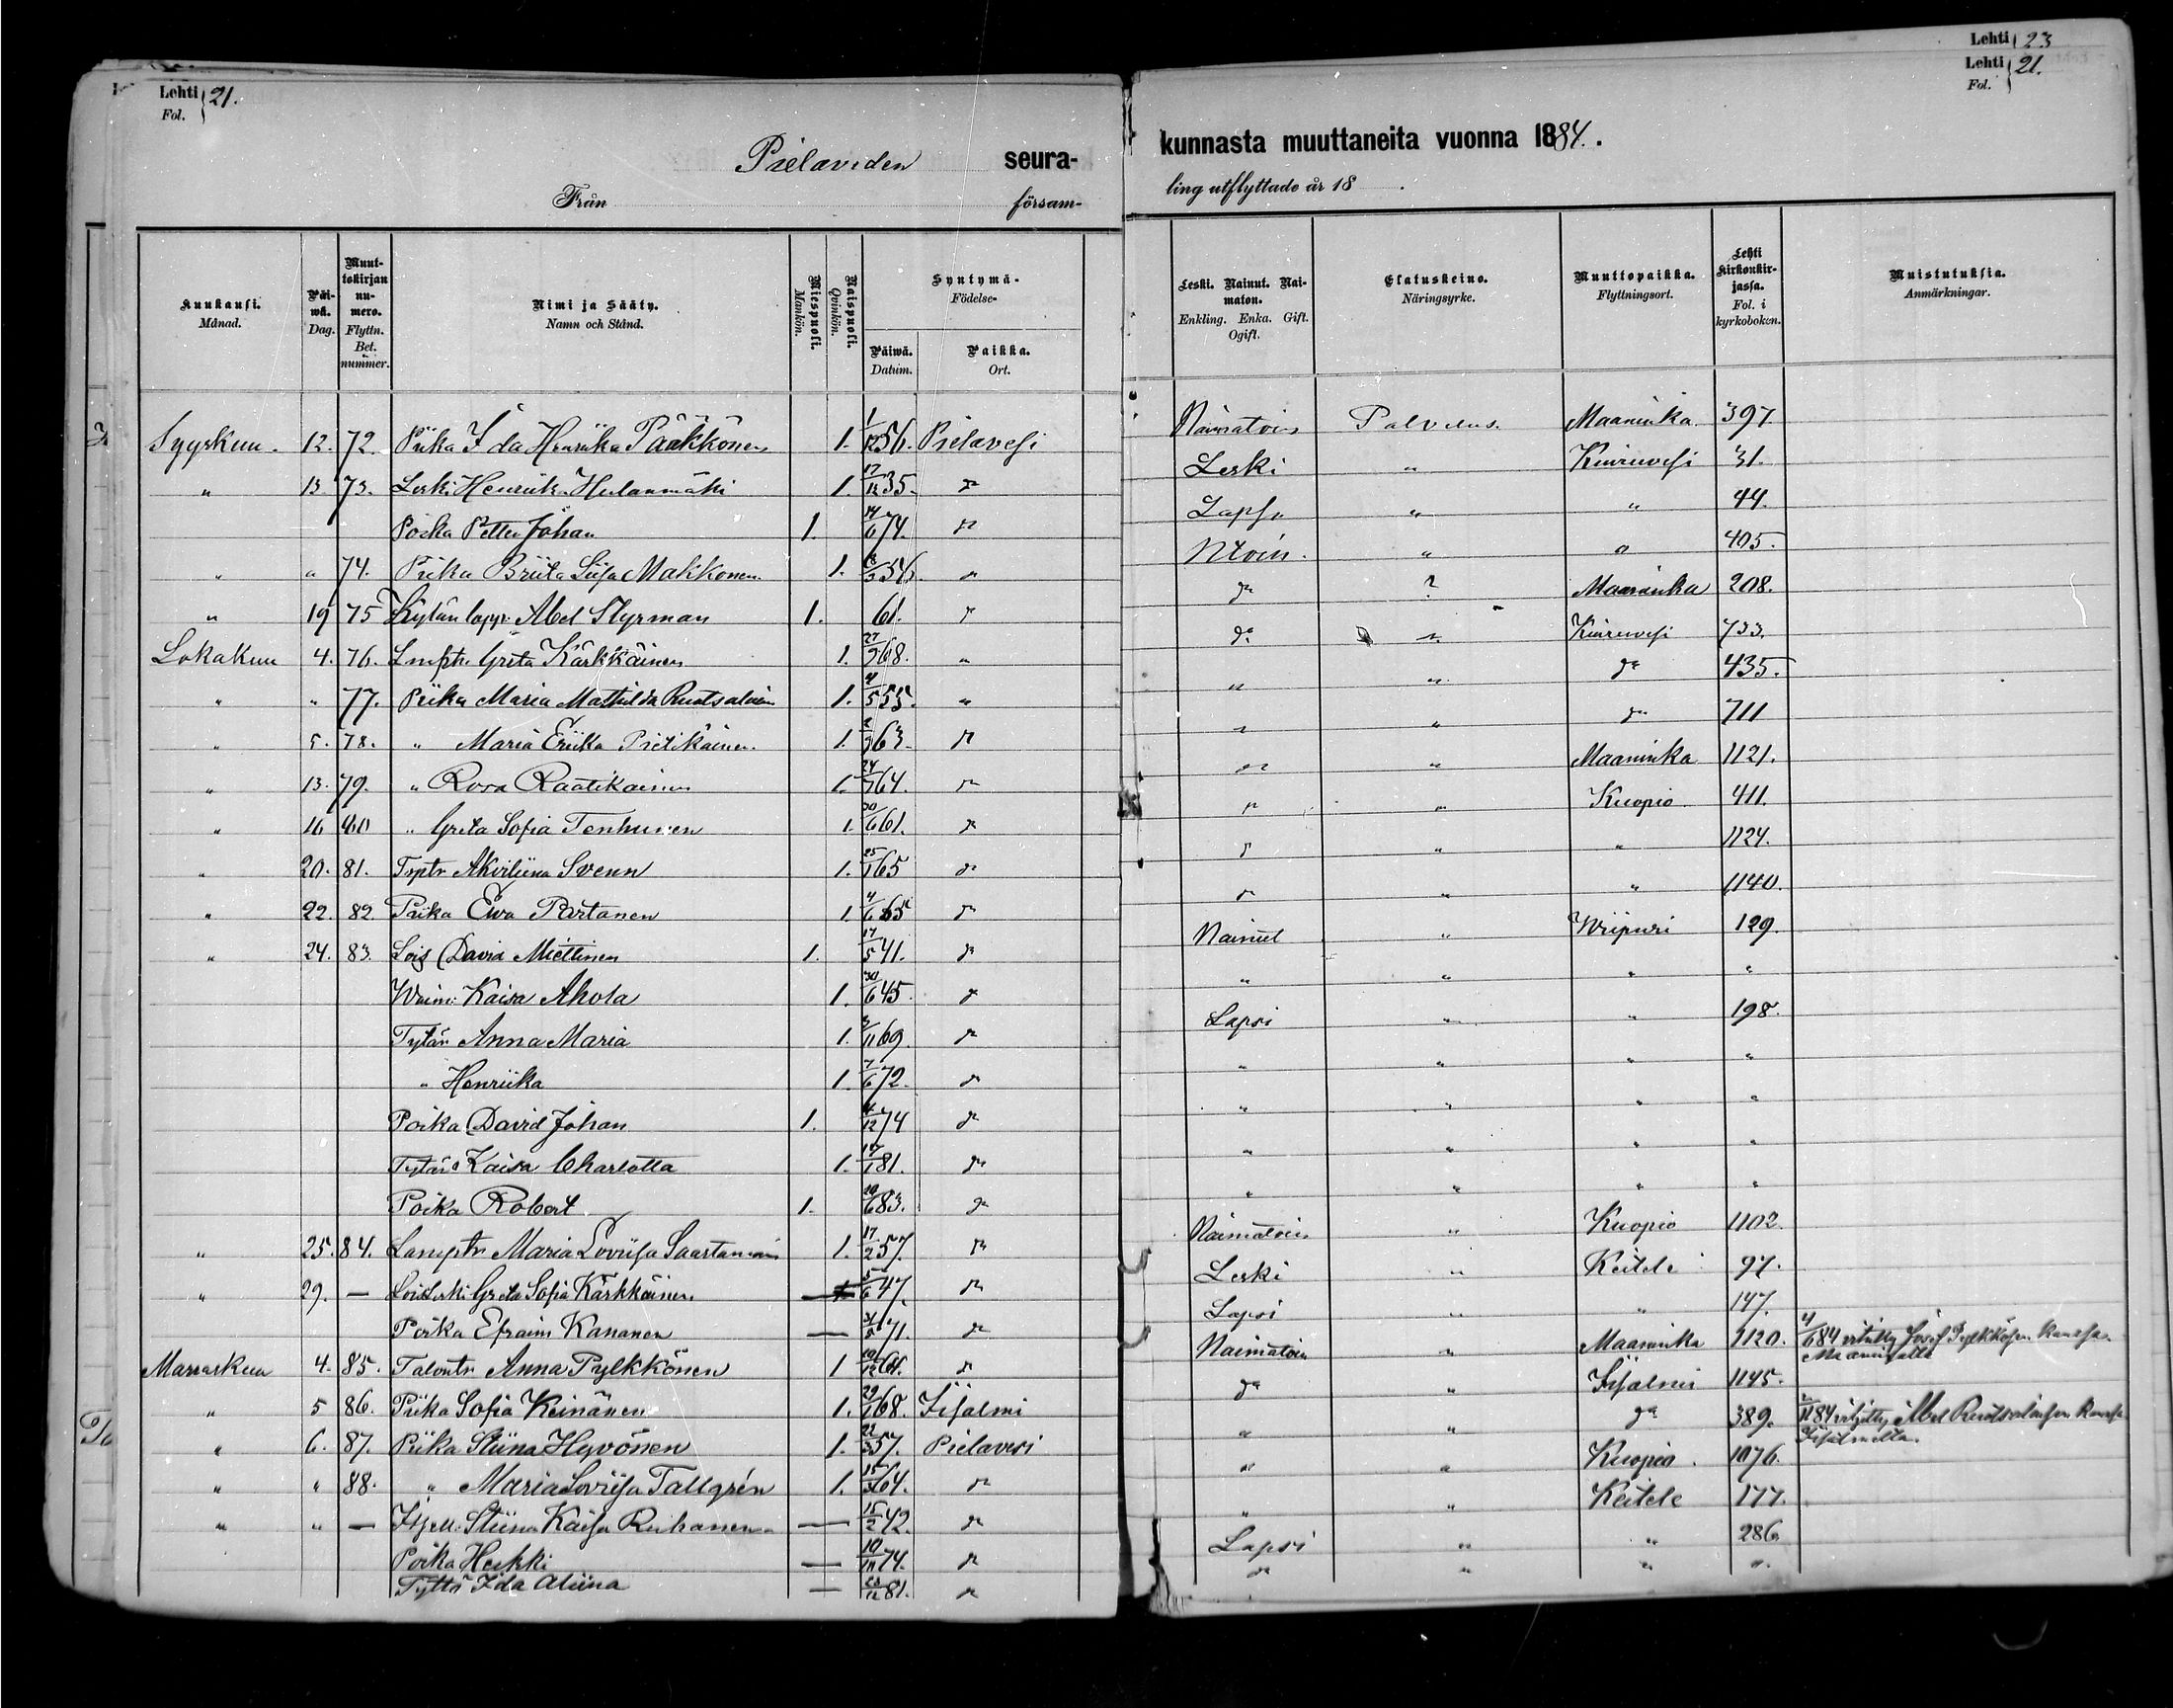 Lehti 21.
Fol.
Pielaveden seura-
Från försam-
Kuukausi. Månad.
Päiwä. Dag.
Muuttokirjan numero. Flyttn. Bet. nummer.
Nimi ja Sääty. Namn och Stånd.
Miespuoli. Mankön.
Naispuoli. Qvinkön.
Syntymä- Födelse-
Päiwä. Datum.
Paikka. Ort.
Syyskuu. 12. 72. Piika Ida Henriika Pääkkönen 1. 1/12 56. Pielavesi
" 13. 73. Leski Henriik. Hulanmäki 1. 17/12 35. do
Poika Petter Johan 1. 14/6 74. do
" " 74. Piika Briita Liisa Makkonen 1. 56. do
" 19 75 Kylän lappr. Abel Styrman 1. 61. do
Lokakuu 4. 76. Lmptr. Greta Kärkkäinen 1. 27/9 68. "
" " 77. Piika Maria Mathilda Ruotsalain 1. 4/5 55. "
" 5. 78. " Maria Eriika Pietikäinen. 1. 63. do
" 13. 79. " Rosa Raatikainen 1. 24/7 64. do
" 16 80 " Greta Sofia Tenhunen 1. 30/6 61. do
" 20. 81. Trptr Akviliina Svenn 1. 25/1 65 do
" 22. 82. Piika Ewa Partanen 1. 4/6 65 do
" 24. 83. Lois David Miettinen 1. 17/5 41. do
Waim: Kaisa Ahola 1. 30/6 45. do
Tytär Anna Maria 1. 3/11 69. do
" Henriika 1. 7/6 72. do
Poika David Johan 1. 4/12 74 do
Tytär Kaisa Charlotta 1. 81. do
Poika Robert 1. 83. do
" 25. 84. Lamptr Maria Loviisa Saastamoin 1. 17/2 57. do
" 29. — Loisleski Greta Sofia Kärkkäinen — 5/6 47. do
Poika Efraim Kananen — 71. do
Marraskuu 4. 85. Talontr Anna Pylkkönen 1 10/12 64. do
" 5 86. Piika Sofia Keinänen 1. 29/1 68. Iisalmi
" 6. 87. Piika Stiina Hyvönen 1. 22/3 57. Pielavesi
" " 88. " Maria Loviisa Tallgrén 1. 64. do
" " — Itsell: Stiina Kaisa Ruhanen — 15/2 42. do
Poika Heikki — 74. do
Tyttö Ida Aliina — 23/12 81. do
Lehti 23
Lehti 21.
Fol.
kunnasta muuttaneita vuonna 1884.
ling utflyttade år 18 .
Leski. Nainut. Naimaton. Enkling. Enka. Gift. Ogift.
Elatuskeino. Näringsyrke.
Muuttopaikka. Flyttningsort.
Lehti kirkonkirjassa. Fol. i kyrkoboken.
Muistutuksia. Anmärkningar.
Naimatoin Palvelus. Maaninka. 397.
Leski " Kiuruvesi 31.
Lapsi " " 44.
Ntoin. " " 405.
do ? Maaninka 208.
do " Kiuruvesi 733.
" " do 435.
" " do 711
" " Maaninka 1121.
" " Kuopio 411.
" " " 1124.
" " " 1140.
Nainut " Wiipuri 129.
" " " "
Lapsi " " 198.
" " " "
" " " "
" " " "
" " " "
Naimatoin " Kuopio 1102.
Leski " Keitele 97.
Lapsi " " 147.
Naimatoin " Maaninka 1120. 4/6 84 vihitty Josef Pylkkösen kanssa Maaningalla
do " Iisalmi 1145.
" " do 389. 2/11 84 vihitty Abel Ruotsalaisen kanssa Iisalmella.
" " Kuopio. 1076.
" " Keitele 177.
Lapsi " " 286.
do " " "